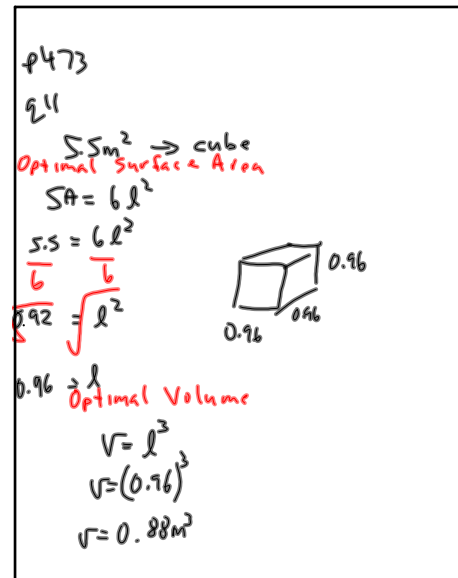 p473
q11
5.5m² → cube
Optimal Surface Area
SA = 6l²
5.5 = 6l²
6 6
√0.92 = √l²
0.96 = l
0.96
0.96 0.96
Optimal Volume
V = l³
V = (0.96)³
V = 0.88m³